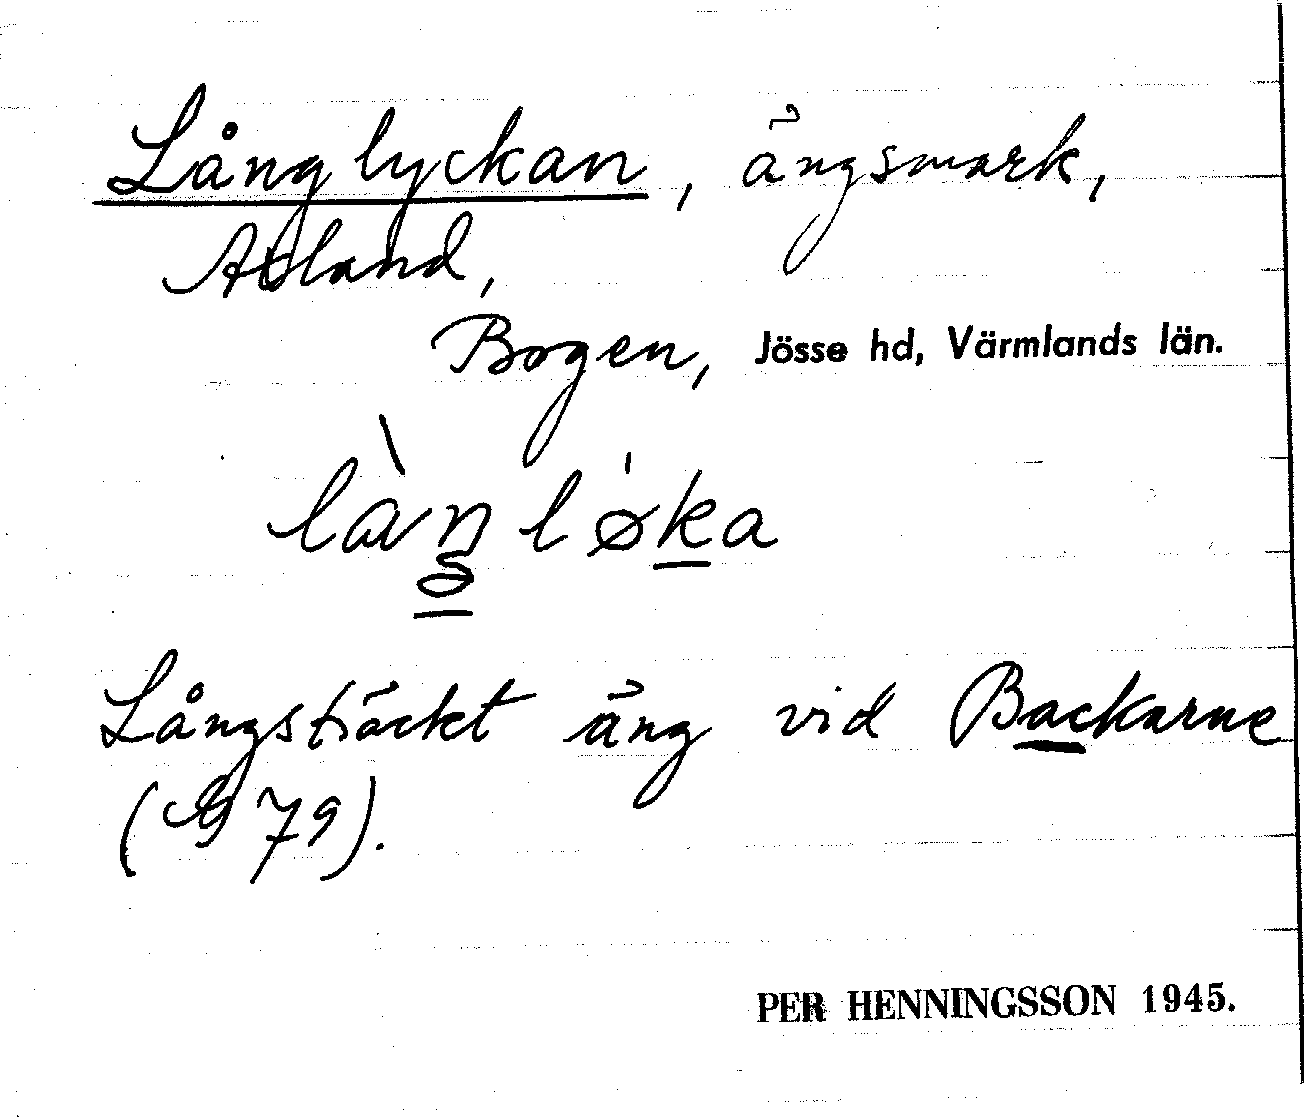 Långlyckan, ängsmark,
Abland,
Bogen, Jösse hd, Värmlands län.
Långsträckt äng vid Backarne
79).
PER HENNINGSSON 1945.